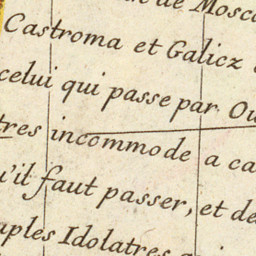 de Mosco
Castroma et Galicz
celui qui passe par Ou
tres incommode a ca
u'il faut passer, et de
uples Idolatres